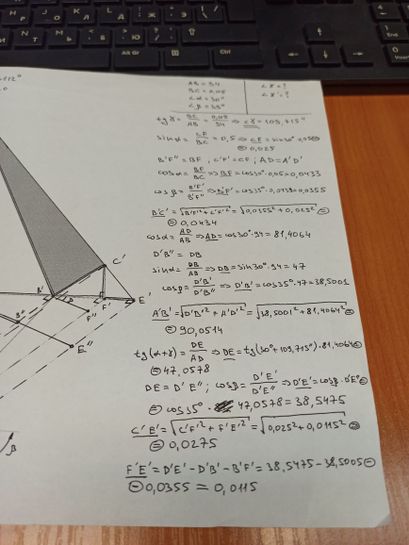 AB = 94
BC = 0,05
∠α = 30°
∠β = 35°
∠γ = ?
∠γ' = ?
tgγ = BC/AB = 0,05/94 ⇒ ∠γ =
sinα = CF/BC = 0,5 ⇒ CF = sin30°·0,05 ⊖
⊖ 0,025
B'F'' = BF, C'F' = CF; AD = A'D'
cosα = BF/BC ⇒ BF = cos30°·0,05 = 0,0433
cosβ = B'F'/B'F'' ⇒ B'F' = cos35°·0,0433 = 0,0355
B'C' = √B'F'² + C'F'² = √0,0355² + 0,025² ⊖
⊖ 0,0434
cosα = AD/AB ⇒ AD = cos30°·94 = 81,4064
D'B'' = DB
sinα = DB/AB ⇒ DB = sin30°·94 = 47
cosβ = D'B'/D'B'' ⇒ D'B' = cos35°·47 = 38,5001
A'B' = √D'B'² + A'D'² = √38,5001² + 81,4064² ⊖
⊖ 90,0514
tg(α+γ) = DE/AD ⇒ DE = tg(30° + 109,715")·81,4064 ⊖
⊖ 47,0578
DE = D'E''; cosβ = D'E'/D'E'' ⇒ D'E' = cosβ·D'E'' ⊖
⊖ cos35° · 47,0578 = 38,5475
C'E' = √C'F'² + F'E'² = √0,025² + 0,0115² ⊖
⊖ 0,0275
F'E' = D'E' - D'B' - B'F' = 38,5475 - 38,5005 ⊖
⊖ 0,0355 = 0,0115
C'
E'
F'
F''
E''
B''
β
Alt Gr
Ctrl